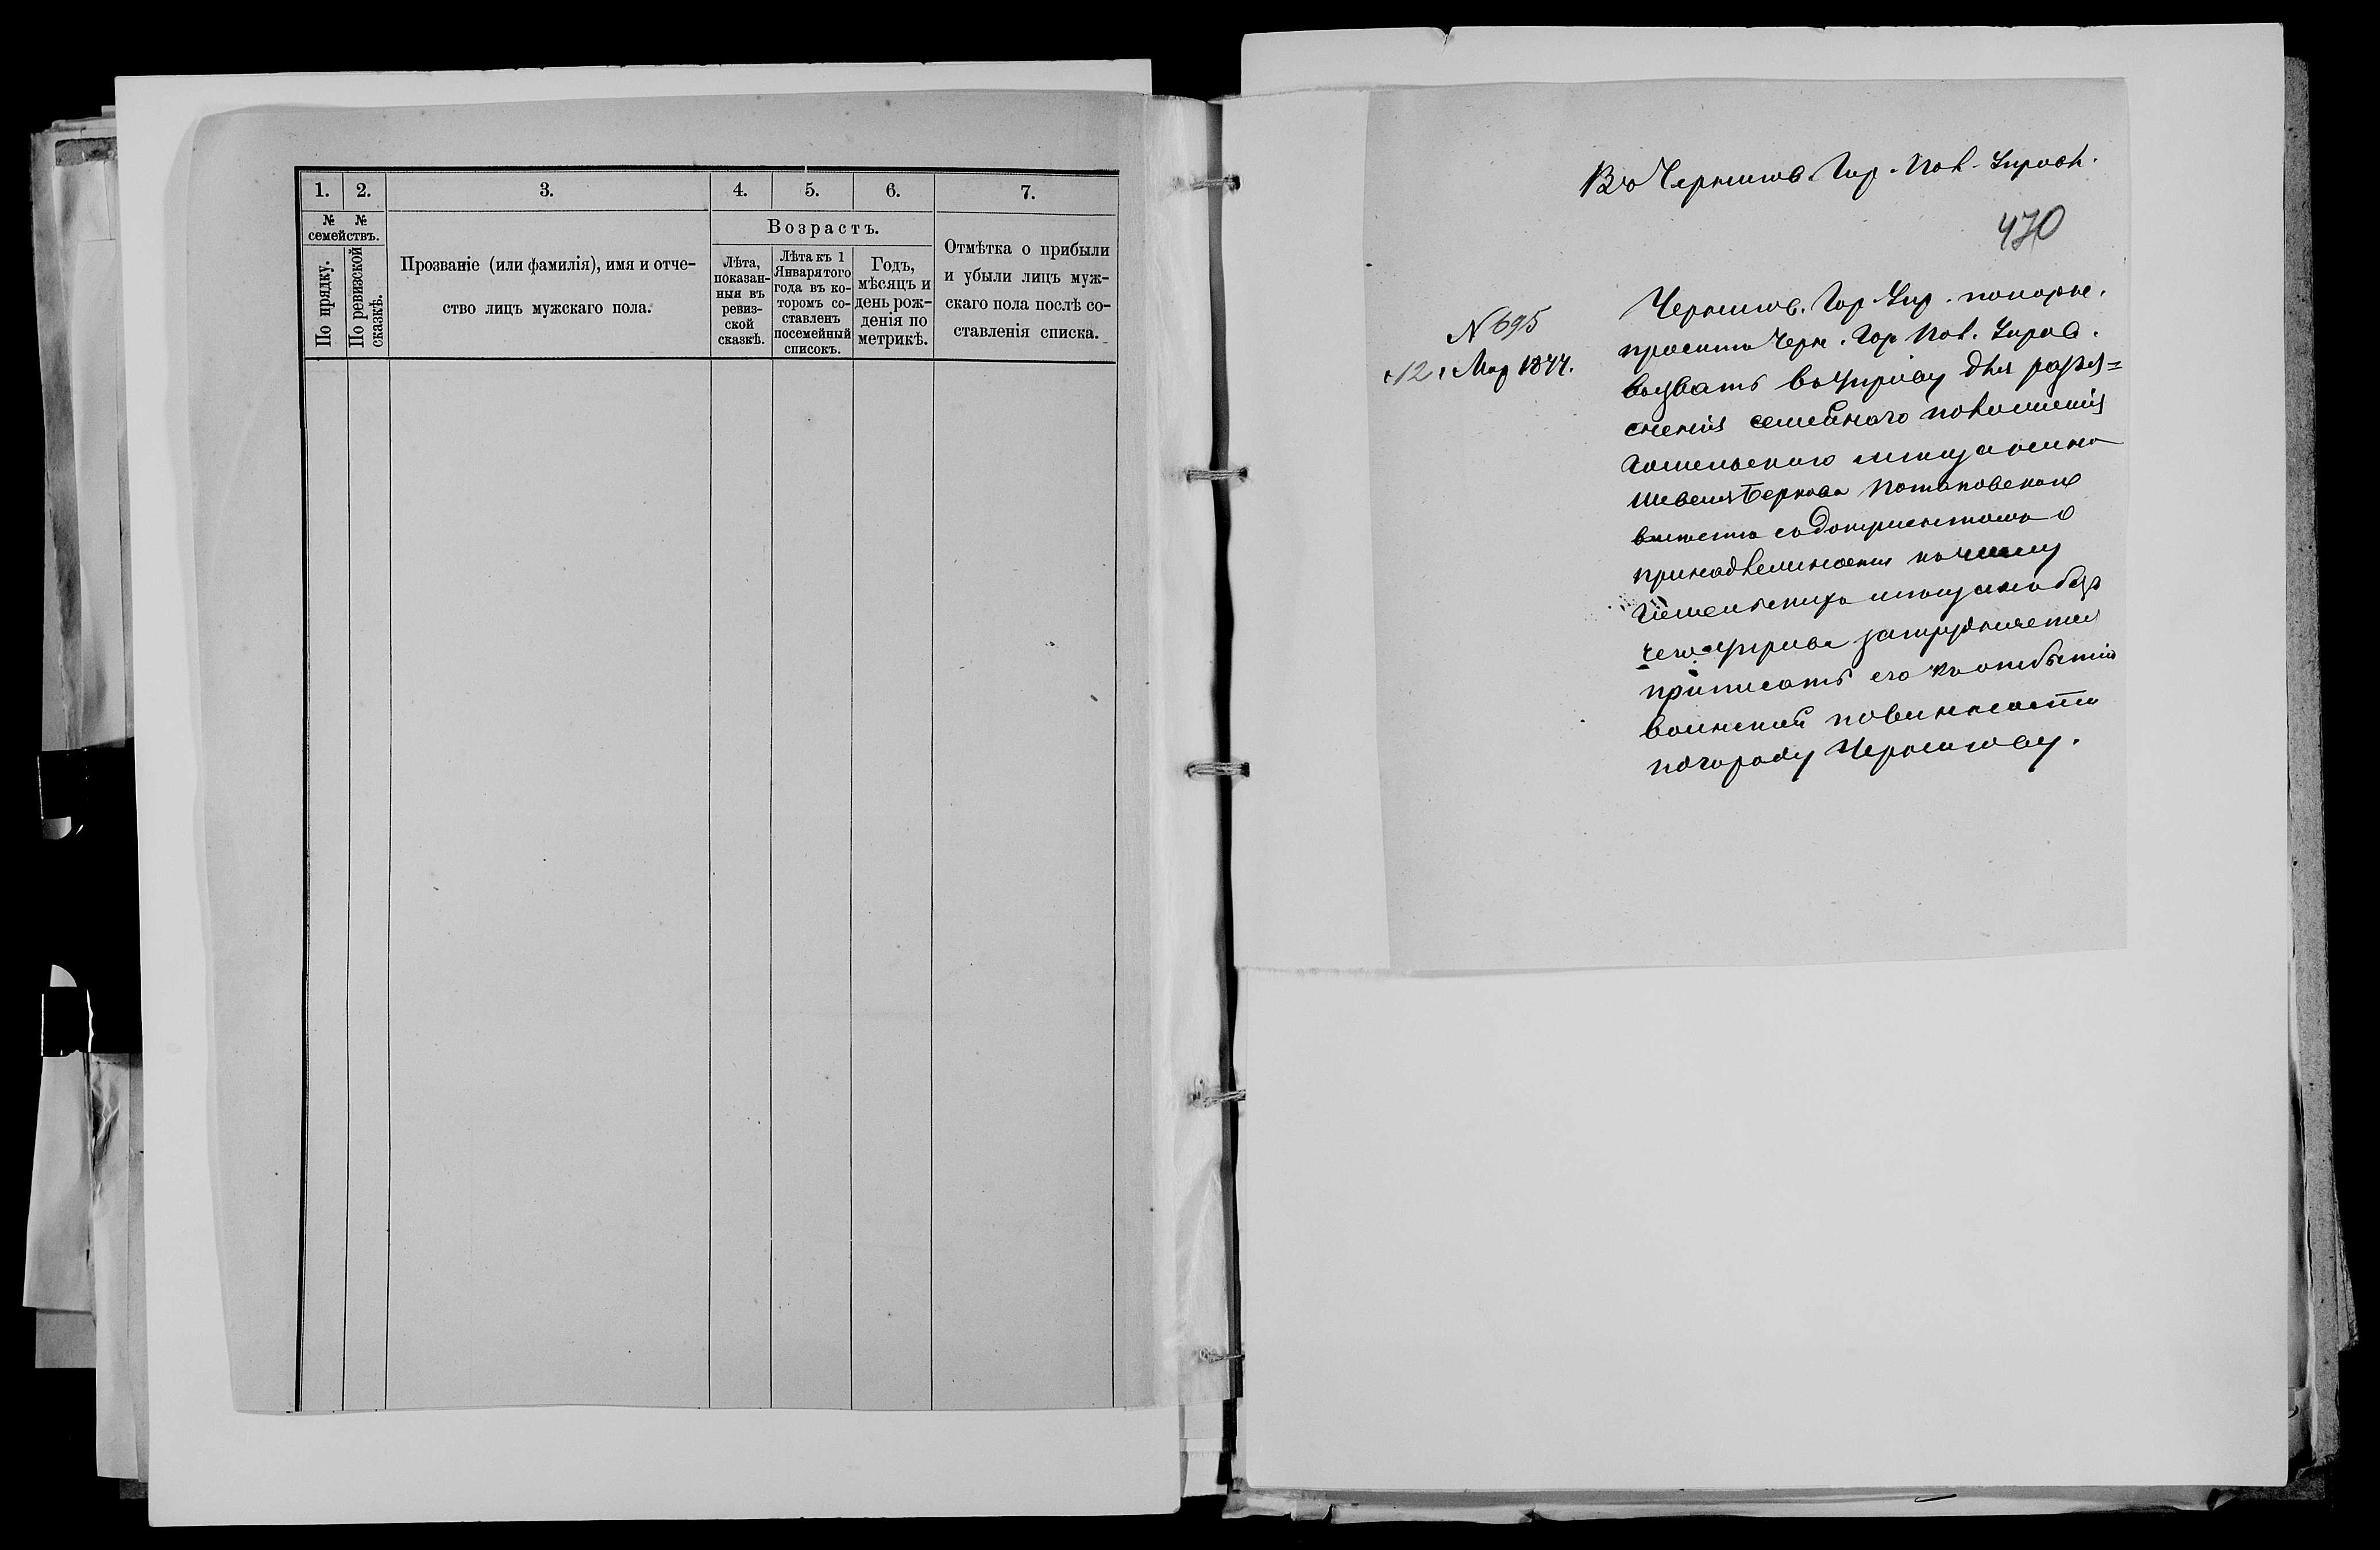 1. 2. 3. 4. 5. 6. 7.
№ № семействъ.
По прядку.
По ревизской сказкѣ.
Прозваніе (или фамилія), имя и отче-
ство лицъ мужскаго пола.
Возрастъ.
Лѣта,
показан-
ныя въ
ревиз-
ской
сказкѣ.
Лѣта къ 1
Января того
года въ ко-
торомъ со-
ставленъ
посемейный
списокъ.
Годъ,
мѣсяцъ и
день рож-
денія по
метрикѣ.
Отмѣтка о прибыли
и убыли лицъ муж-
скаго пола послѣ со-
ставленія списка.
Въ Чернигов. Гор. Пол. Управл.
470
N 695
12 Мар 1877.
Чернигов. Гор. Упр. покорн.
проситъ Черн. Гор. Пол. Управ.
вызвать въ Управу для разъя=
сненія семейнаго положенія
Гомельскаго мѣщанина
Шевеля Беркова
вмѣстѣ съ документомъ о
принадлежности къ числу
Гомельскихъ мѣщанъ безъ
чего Управа затрудняется
приписать его къ отбытію
воинской повинности
по городу Чернигову.